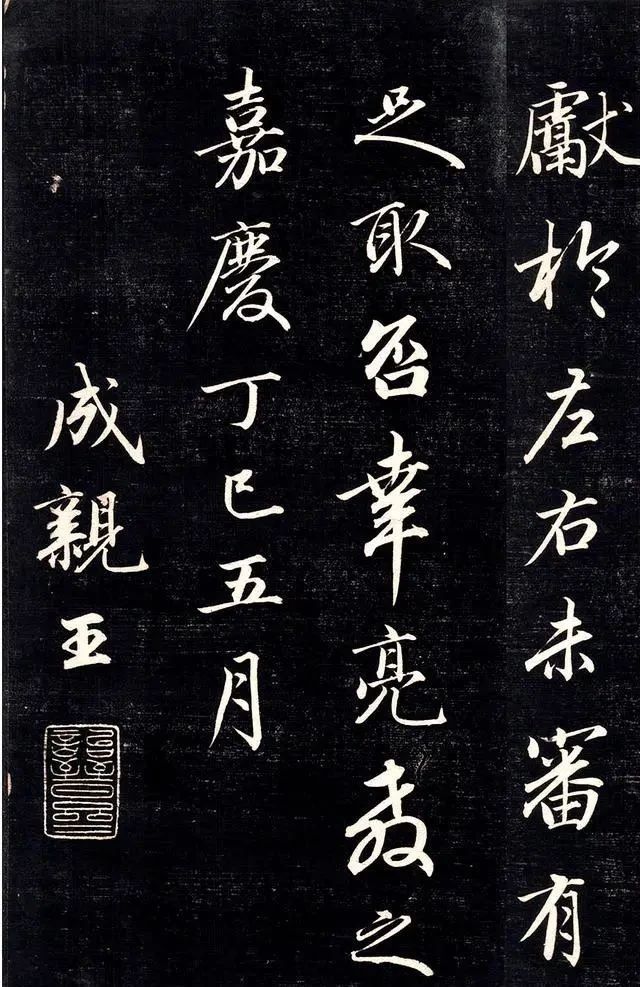 獻於左右未審有
足取否幸亮教之
嘉慶丁巳五月
成親王